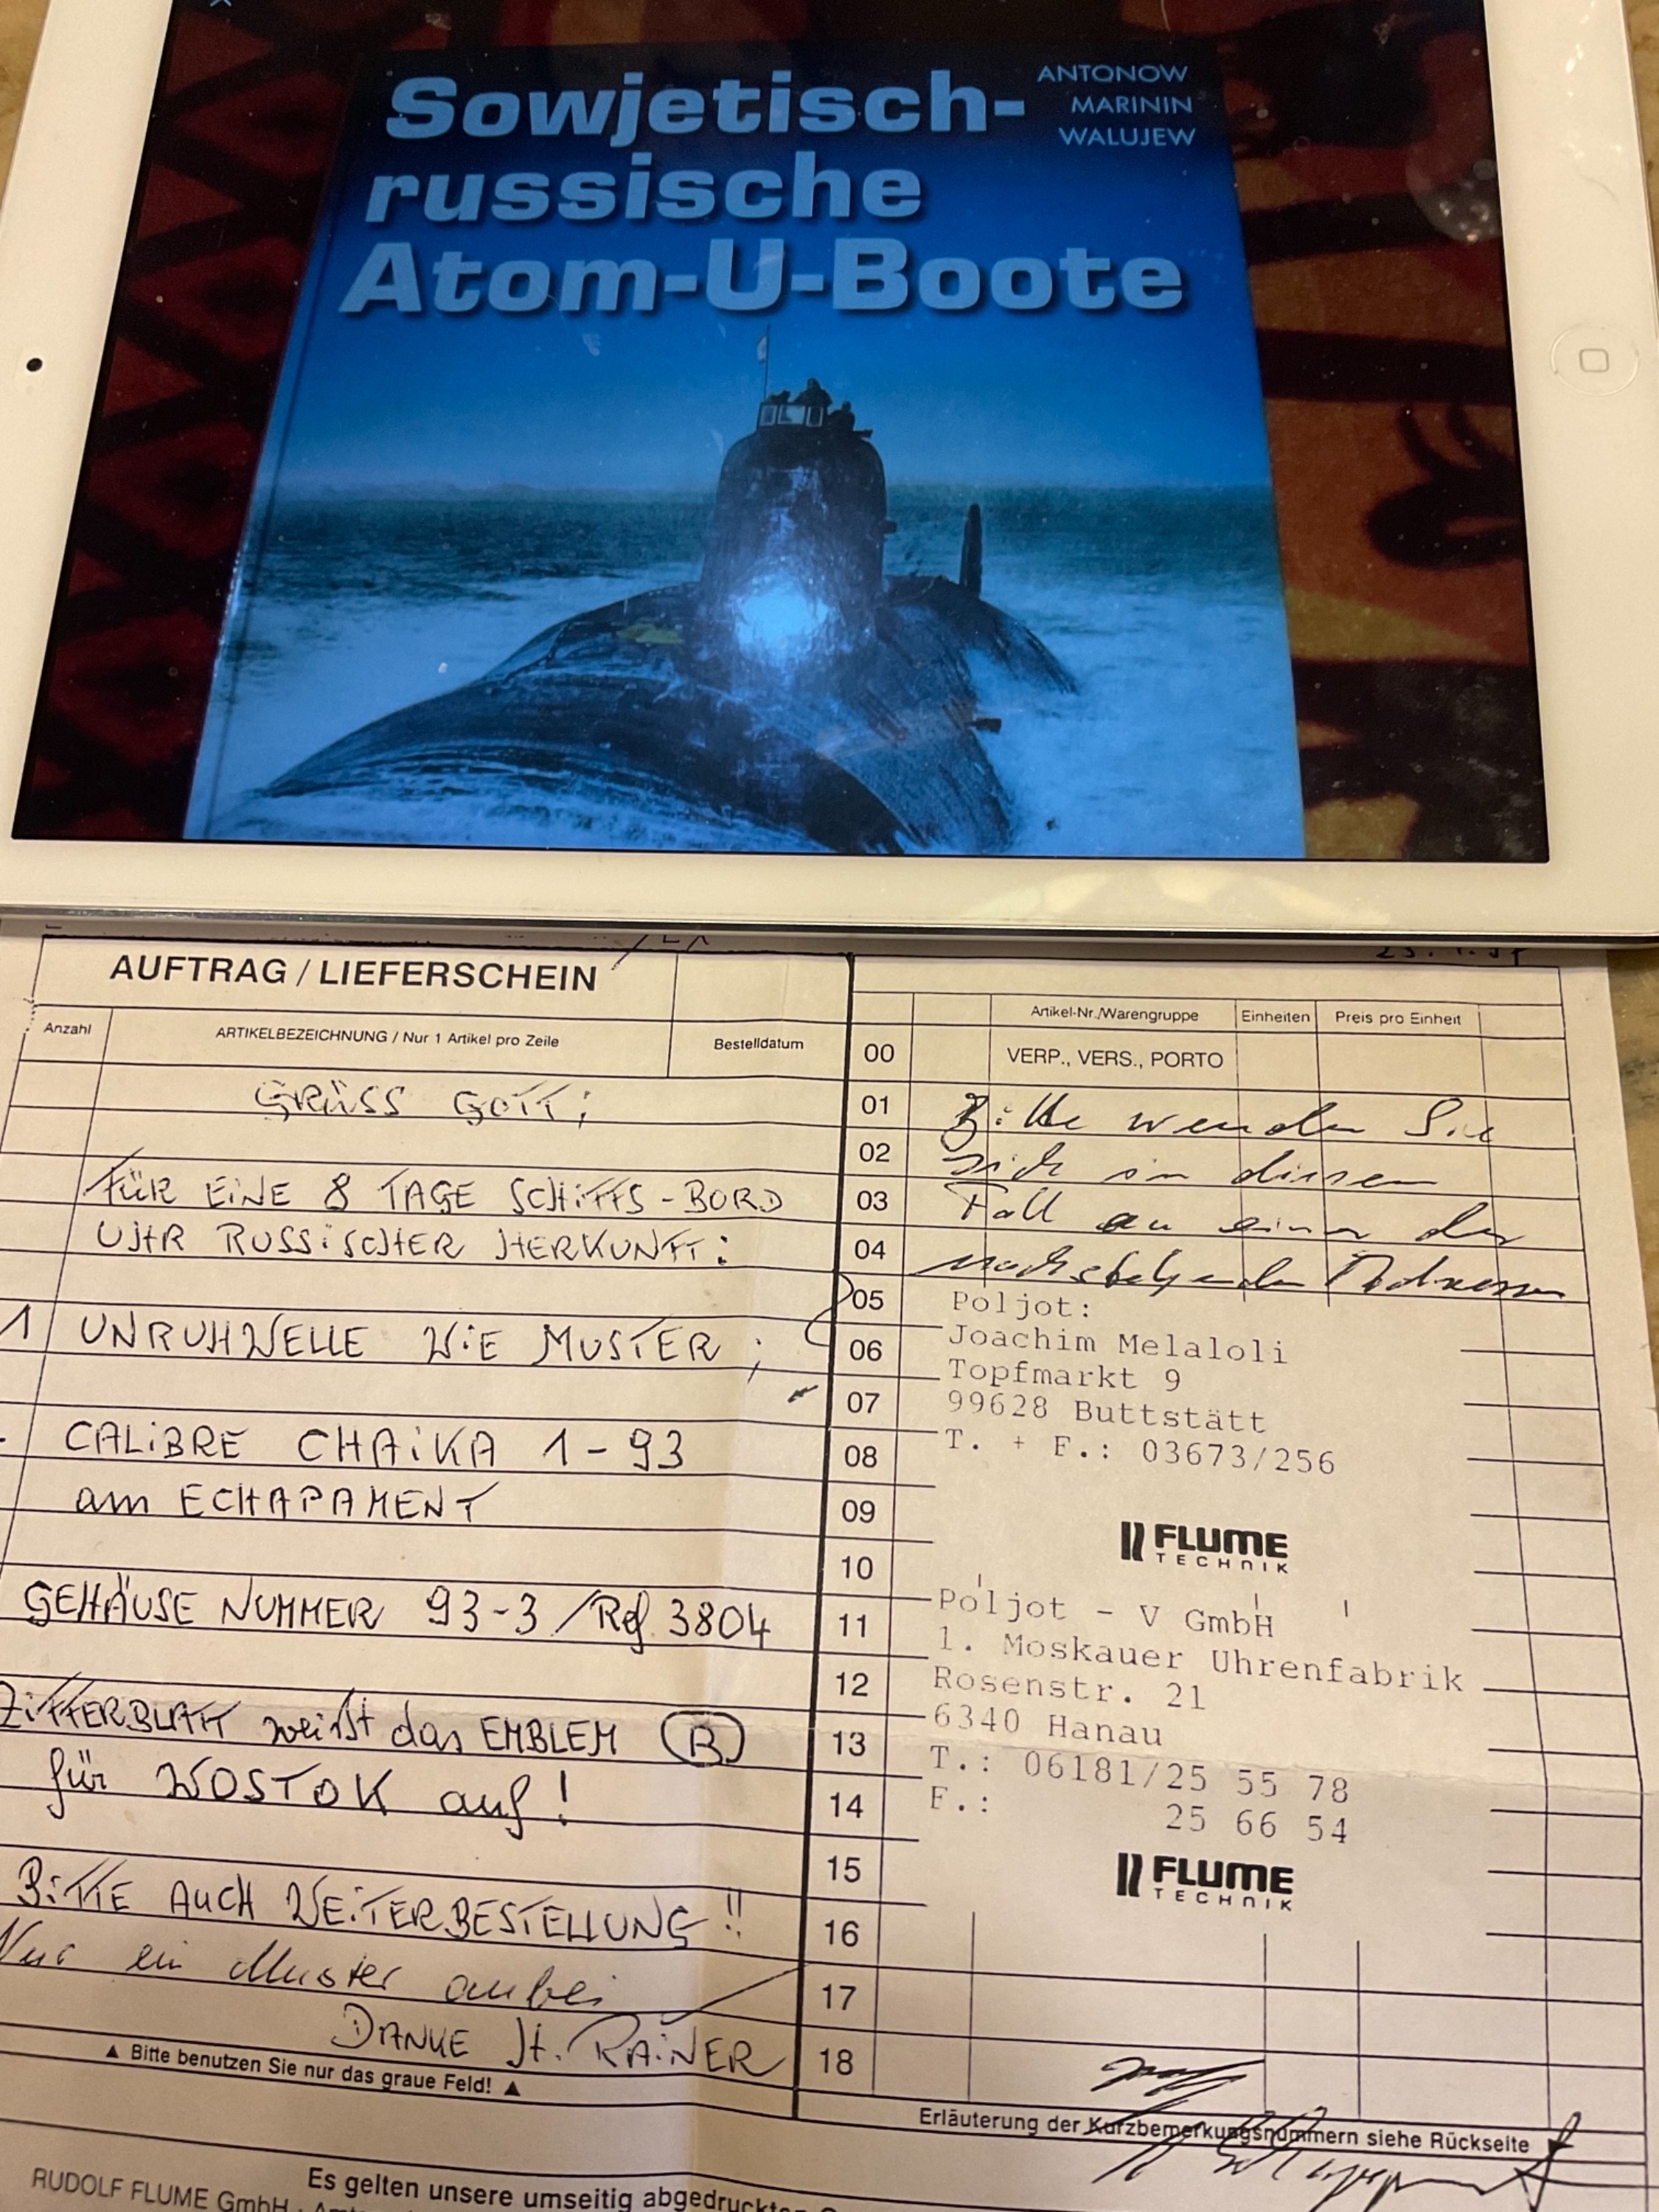 Sowjetisch-
russische
Atom-U-Boote
ANTONOW
MARININ
WALUJEW
AUFTRAG / LIEFERSCHEIN
Anzahl
ARTIKELBEZEICHNUNG / Nur 1 Artikel pro Zeile
Bestelldatum
GRÜSS GOTT;
FÜR EINE 8 TAGE SCHIFFS-BORD
UHR RUSSISCHER HERKUNFT:
1 UNRUHWELLE WIE MUSTER;
CALIBRE CHAIKA 1-93
am ECHAPAMENT
GEHÄUSE NUMMER 93-3 / Ref 3804
ZIFFERBLATT weist das EMBLEM B
für WOSTOK auf!
BITTE AUCH WEITERBESTELLUNG!!
Nur ein Muster anbei
DANKE H. RAINER
▲ Bitte benutzen Sie nur das graue Feld! ▲
Artikel-Nr./Warengruppe
Einheiten
Preis pro Einheit
00 VERP., VERS., PORTO
01 Bitte wenden Sie
02 sich in diesem
03 Fall an einen der
04 nachstehenden Adressen
05 Poljot:
06 Joachim Melaloli
07 Topfmarkt 9
08 99628 Buttstätt
T. + F.: 03673/256
09
10 FLUME
TECHNIK
11 Poljot - V GmbH
12 1. Moskauer Uhrenfabrik
Rosenstr. 21
13 6340 Hanau
14 T.: 06181/25 55 78
F.: 25 66 54
15 FLUME
TECHNIK
16
17
18
Erläuterung der Kurzbemerkungsnummern siehe Rückseite
Es gelten unsere umseitig abgedruckten
RUDOLF FLUME GmbH